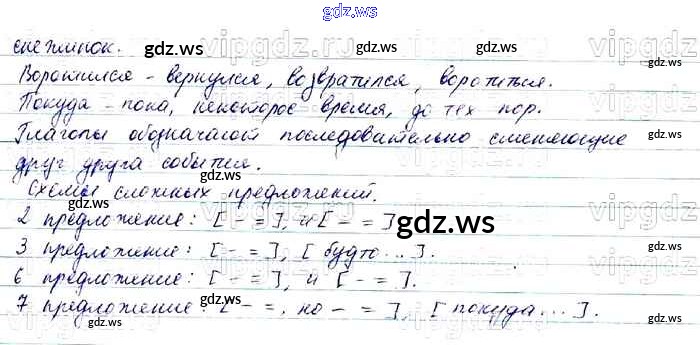 gdz.ws
снежинок.
Воротился - вернулся, возвратился, воротиться.
Покуда - пока, некоторое время, до тех пор.
Глаголы обозначают последовательно сменяющие
друг друга события.
Схемы сложных предложений.
2 предложение: [ - = ], и [ - = ].
3 предложение: [ - = ], [ будто... ].
6 предложение: [ - = ], и [ - = ].
7 предложение: [ - =, но - = ], [ покуда... ].